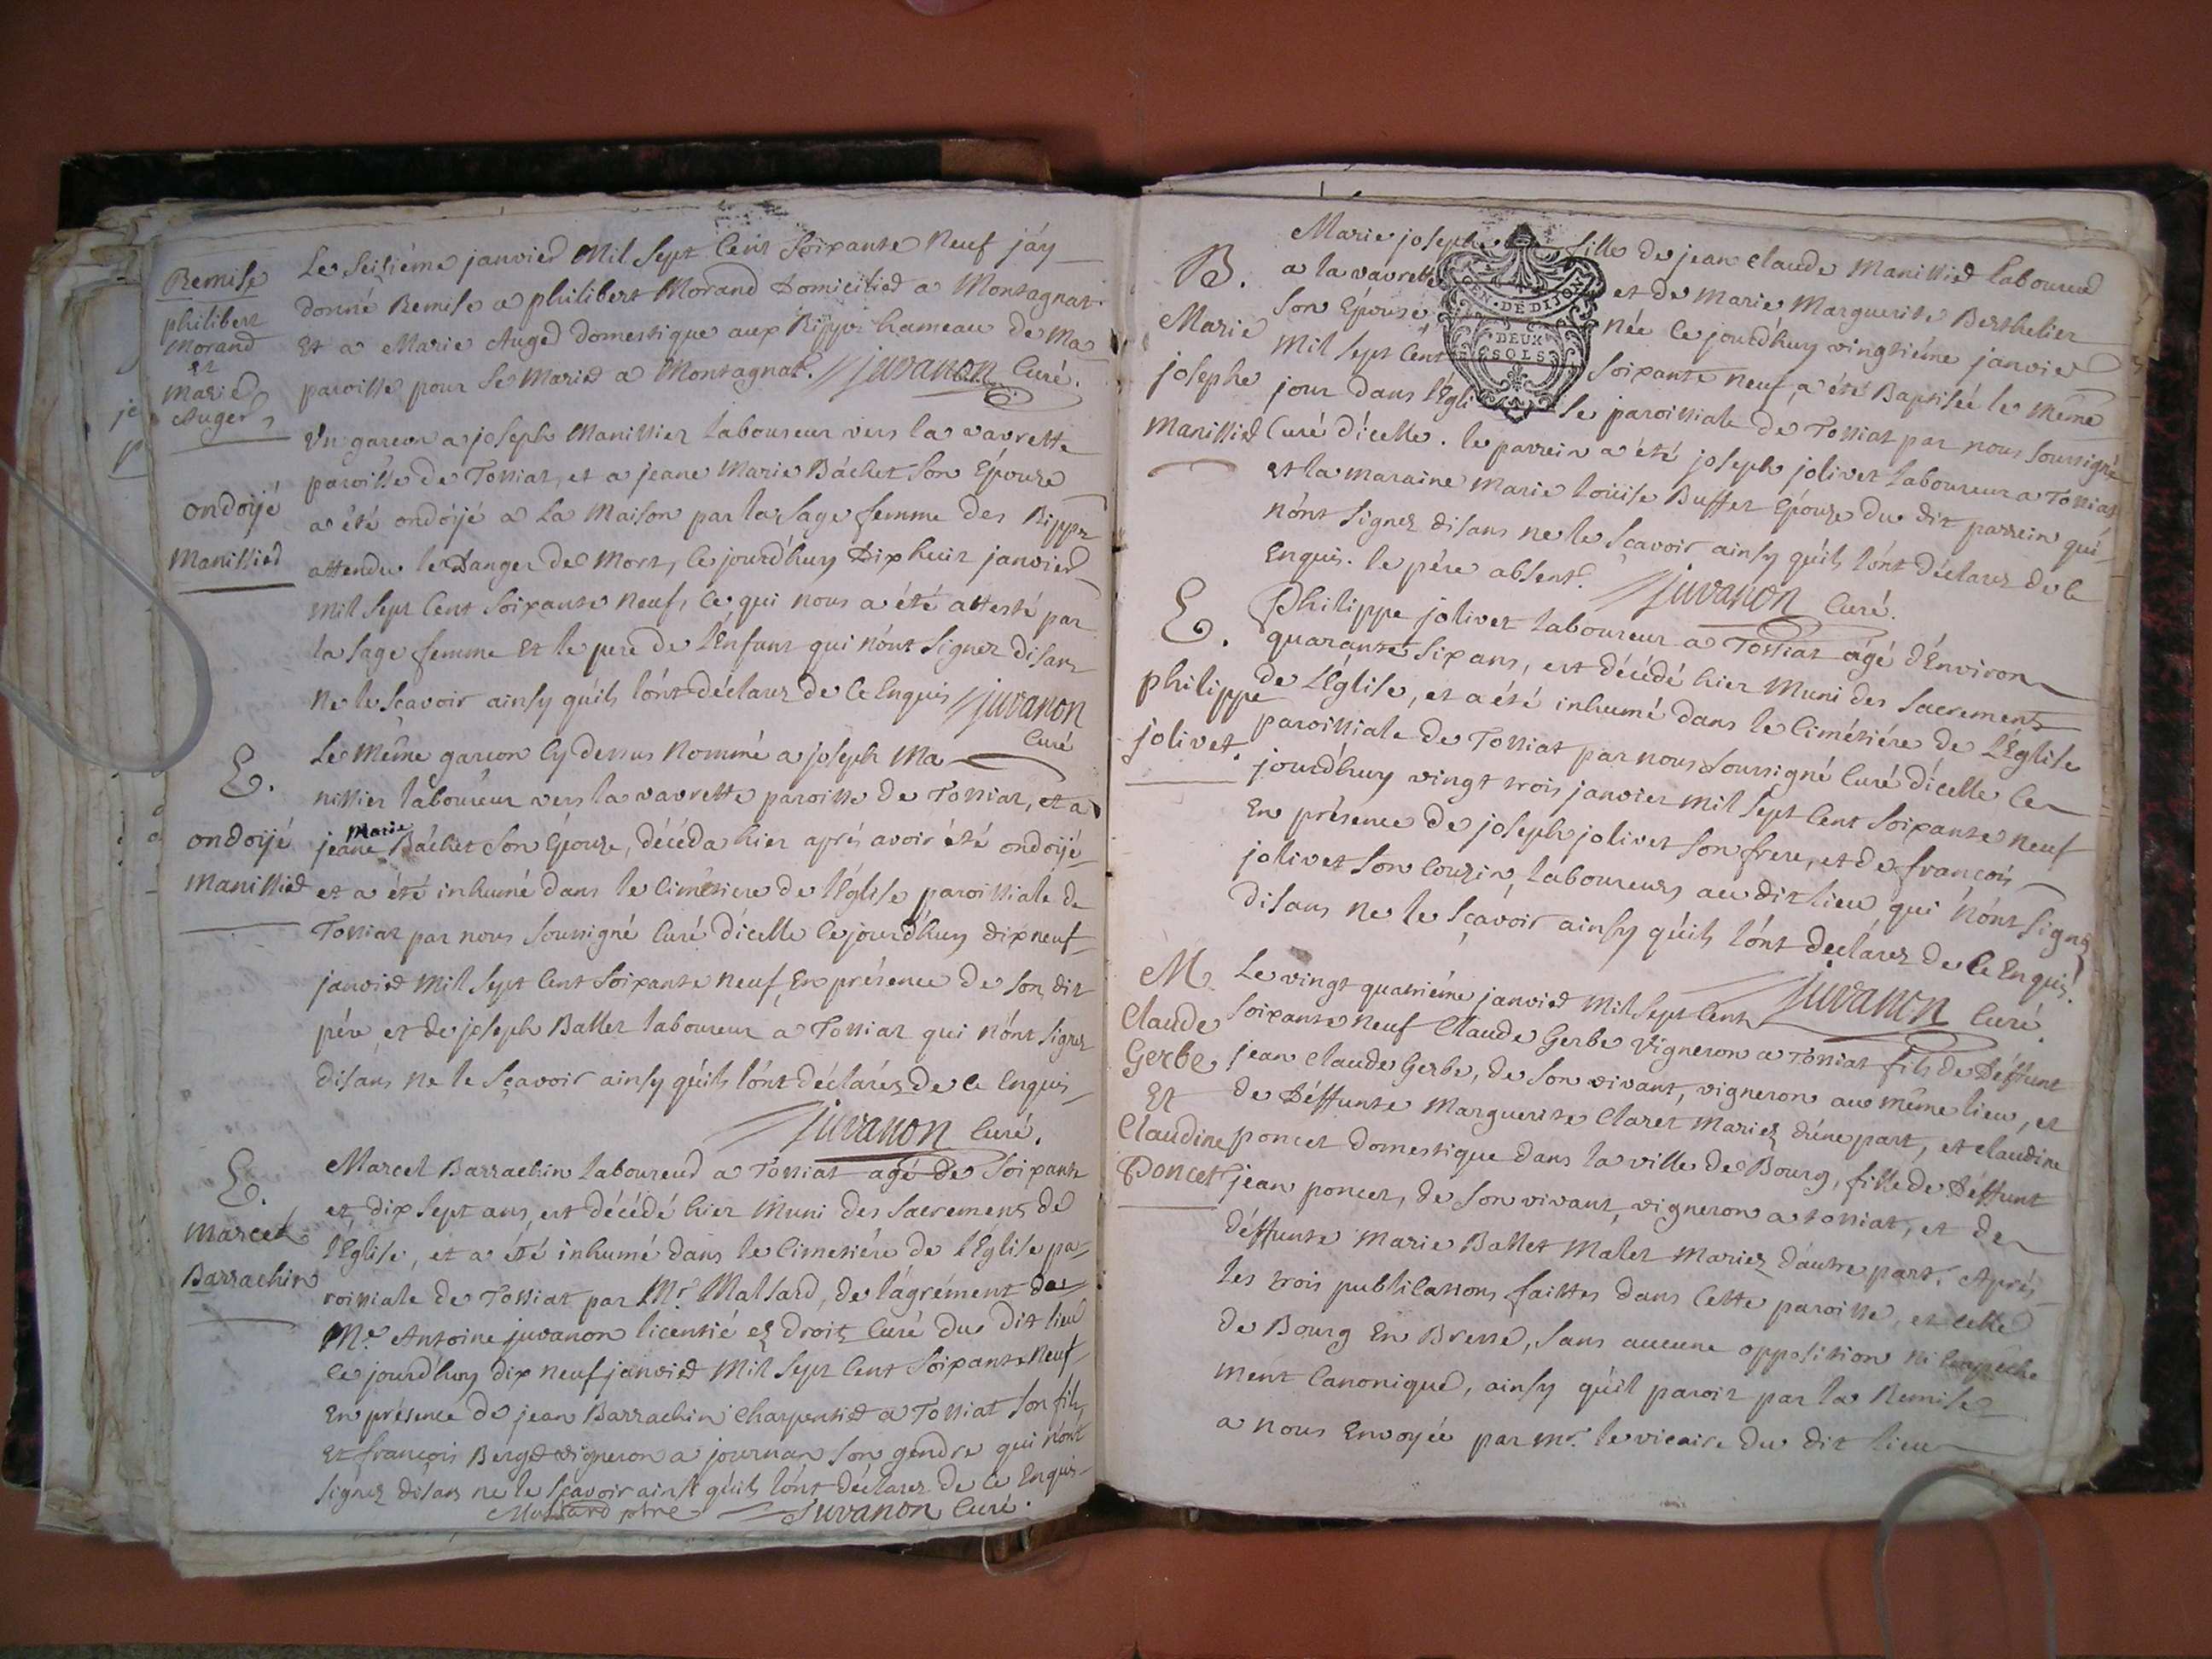 Remise
philibert
Morand
et
Marie
Auger
Le Seisiéme janvier Mil Sept Cent Soixante Neuf jáy
donné Remise a philibert Morand Domicilié a Montagnat
Et a Marie Auger domestique aux Rippes hameau de Ma
paroisse pour Se Marier a Montagnat. juvanon Curé.
ondoijé
Manissier
Un garcon a joseph Manissier Laboureur vers la vavrette
paroisse de Tossiat, et a jeane Marie Báchet Son Épouze
a été ondóijé a La Maison par la Sage femme des Rippes
attendu le Danger de Mort, Ce jourd'huy Dix huit janvier
Mil Sept Cent Soixante Neuf, Ce qui nous a été attesté par
la Sage femme Et le pere de l'Enfant qui n'ont Signez disans
Ne le Sçavoir ainsy qu'ils l'ont déclarez de Ce Enquis juvanon
Curé
E.
ondoijé
Manissier
Le Même garcon Cy dessus Nommé a joseph Ma
nissier laboureur vers la vavrette paroisse de Tossiat, et a
Marie
jeane Báchet Son Épouze, décéda hier aprés avoir été ondoijé
et a été inhumé dans le Cimetiere de l'Église paroissiale de
Tossiat par nous Soussigné Curé d'icelle Ce jourd'huy dix neuf
janvier Mil Sept Cent Soixante neuf, En présence de Son dit
pére, et de joseph Ballet laboureur a Tossiat qui n'ont Signez
disans Ne le Sçavoir ainsy qu'ils l'ont déclarés de Ce Enquis
juvanon Curé.
E.
Marcel
Barrachin
Marcel Barrachin laboureur a Tossiat agé de Soixante
et dix Sept ans, est décédé hier Muni des Sacremens de
l'Église, et a été inhumé dans le Cimetiére de l'Église pa
roissiale de Tossiat par Mr. Massard, de l'agrément de
Me. Antoine juvanon licentié ez droits Curé du dit lieu
Ce jourd'huy dix neuf janvier Mil Sept Cent Soixante Neuf
En présence de jean Barrachin Charpentier a Tossiat Son fils
Et françois Berger vigneron a journan Son gendre qui n'ont
Signez disans ne le Sçavoir ainsi qu'ils l'ont déclarez de Ce Enquis
Massard ptre juvanon Curé.
B.
Marie
josephe
Manissier
Marie josephe fille de jean Claude Manissier laboureur
a la vavrette et de Marie Marguerite Berthelier
Son Épouze, née Ce jourd'huy vingtiéme janvier
Mil Sept Cent Soixante neuf, a été Baptisée le Même
jour dans l'Égli se paroissiale de Tossiat par nous Soussigné
GEN. DE DIJON
DEUX
SOLS
Curé d'icelle. le parrein a été joseph jolivet laboureur a Tossiat
et la maraine Marie loüise Buffet Épouze du dit parrein qui
n'ont Signez disans ne le Sçavoir ainsy qu'ils l'ont déclarez de Ce
Enquis. le pére absent. juvanon Curé.
E.
philippe
jolivet.
Philippe jolivet laboureur a Tossiat agé d'Environ
quarante Six ans, est décédé hier Muni des Sacremens
de l'Église, et a été inhumé dans le Cimétiére de l'Église
paroissiale de Tossiat par nous Soussigné Curé d'icelle Ce
jourd'huy vingt trois janvier Mil Sept Cent Soixante neuf
En présence de joseph jolivet Son frere, et de françois
jolivet Son Couzin, laboureurs au dit lieu qui n'ont Signez
disans ne le Sçavoir ainsy qu'ils l'ont declarez de Ce Enquis.
juvanon Curé.
M.
Claude
Gerbe,
Et
Claudine
Poncet
Le vingt quatriéme janvier Mil Sept Cent
Soixante neuf Claude Gerbe vigneron a Tossiat fils de Déffunt
jean Claude Gerbe, de Son vivant, vigneron au même lieu, et
de Déffunte Marguerite Claret Mariez d'une part, et Claudine
poncet domestique dans la ville de Bourg, fille de Déffunt
jean poncet, de Son vivant, vigneron a tossiat, et de
déffunte Marie Ballet Malet Mariez d'autre part. Aprés
les trois publications faittes dans Cette paroisse, et celle
de Bourg En Bresse, Sans aucune opposition ni Empeche
ment Canonique, ainsy qu'il paroit par la Remise
a nous Envoyée par Mr. le vicaire du dit lieu